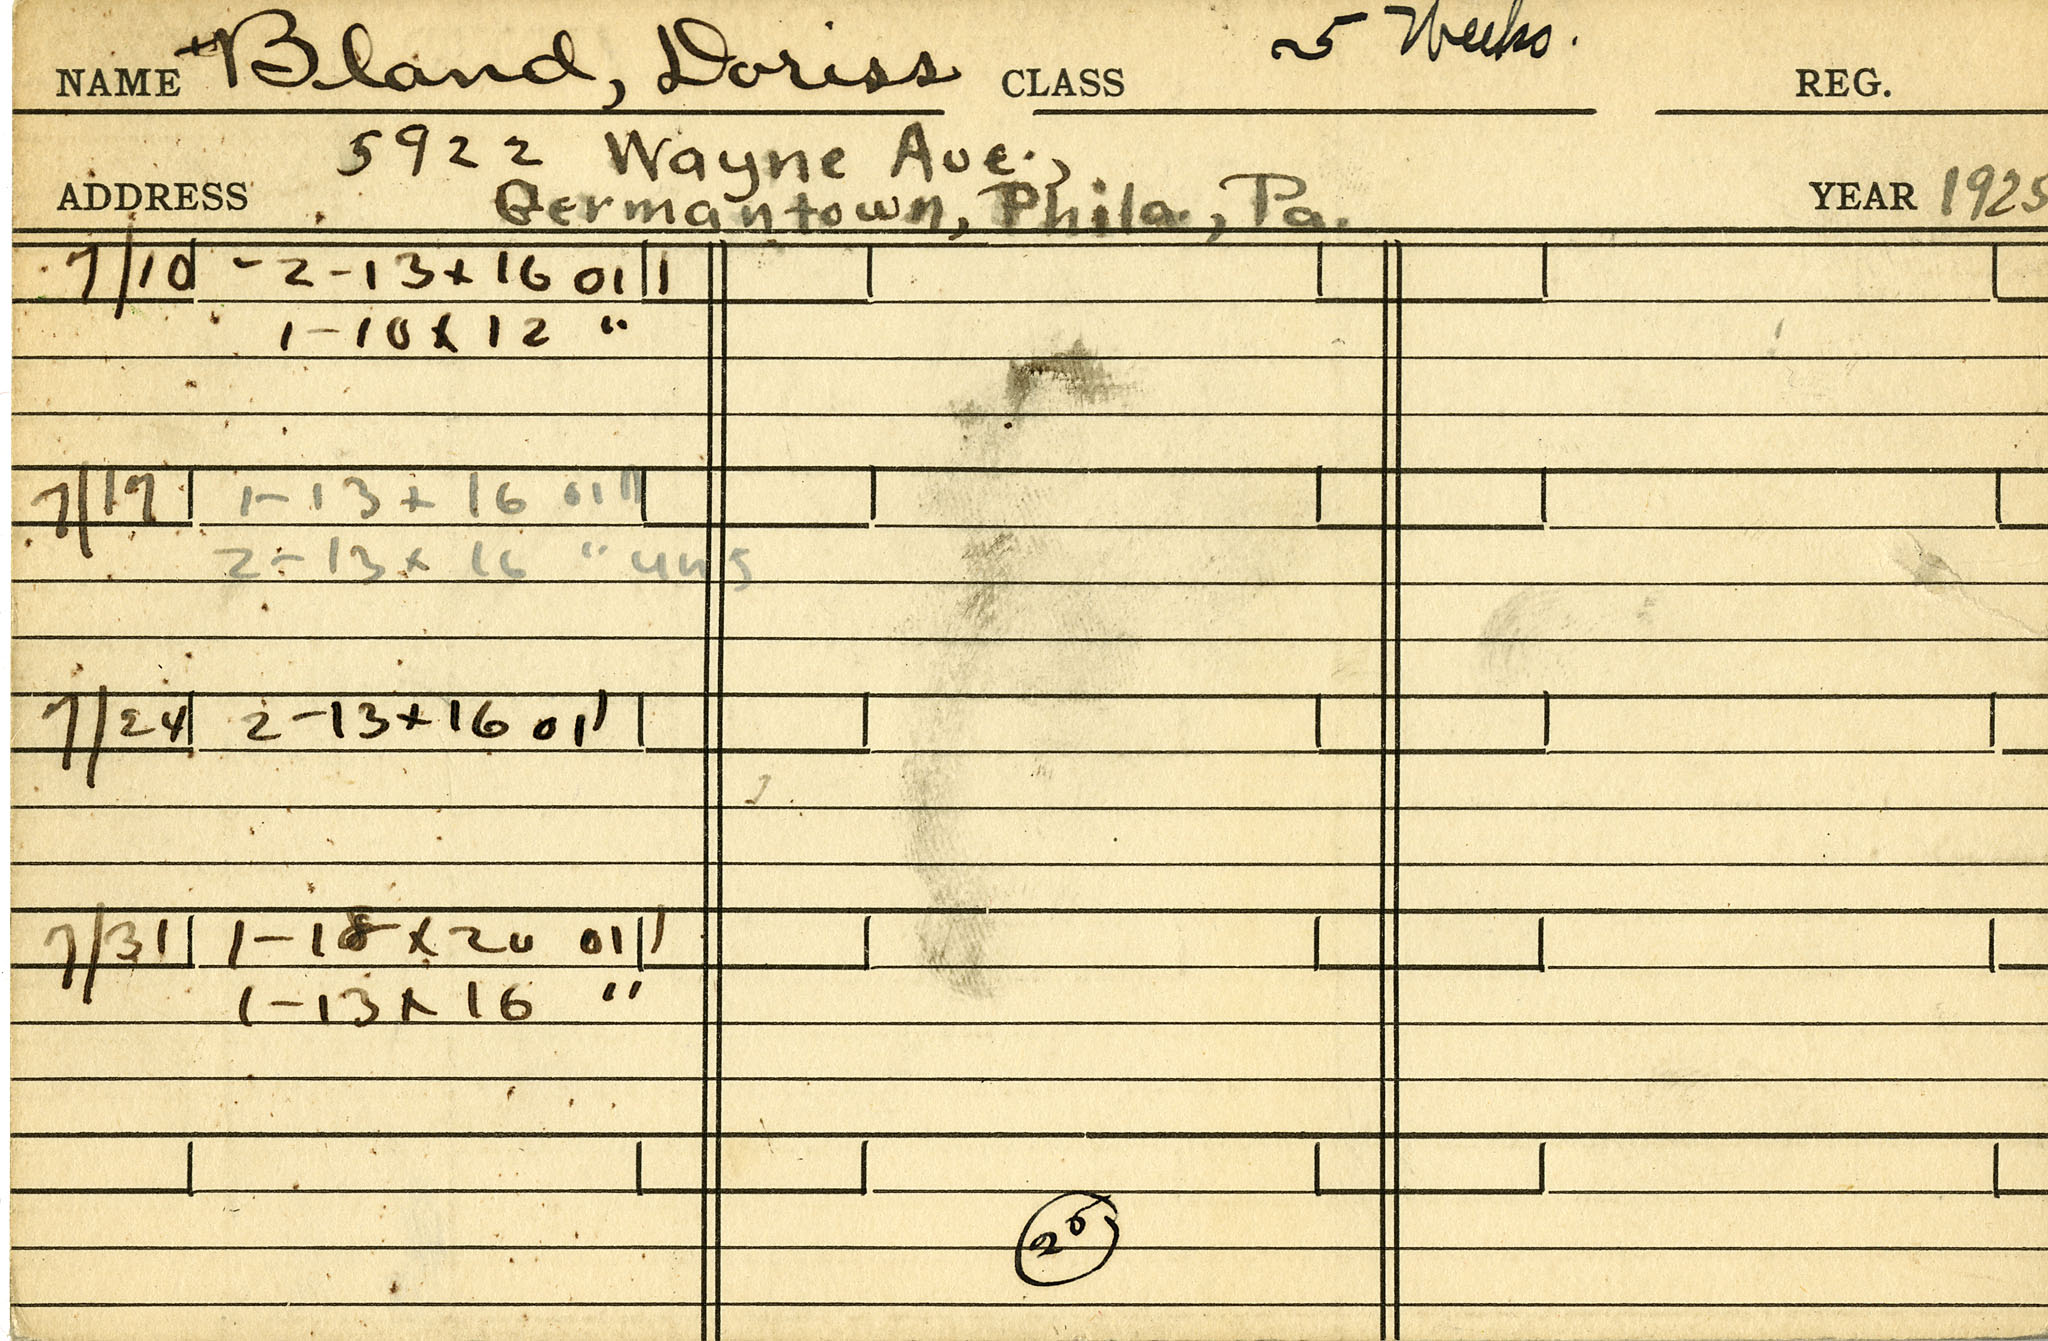 NAME Bland, Doriss CLASS 5 Weeks. REG.
5922 Wayne Ave.,
ADDRESS Germantown, Phila., Pa. YEAR 1925
7/10 -2-13x16 oil
1-10x12 "
7/17 1-13x16 oil
2-13x16 " uns
7/24 2-13x16 oil
7/31 1-18x20 oil
1-13x16 "